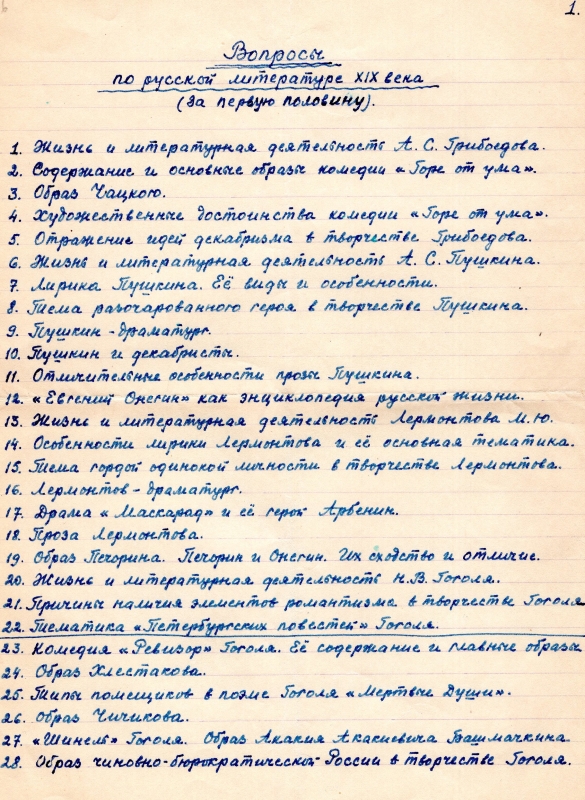 1.
Вопросы
по русской литературе XIX века
(за первую половину).
1. Жизнь и литературная деятельность А. С. Грибоедова.
2. Содержание и основные образы комедии «Горе от ума».
3. Образ Чацкого.
4. Художественные достоинства комедии «Горе от ума».
5. Отражение идей декабризма в творчестве Грибоедова.
6. Жизнь и литературная деятельность А. С. Пушкина.
7. Лирика Пушкина. Её виды и особенности.
8. Тема разочарованного героя в творчестве Пушкина.
9. Пушкин - драматург.
10. Пушкин и декабристы.
11. Отличительные особенности прозы Пушкина.
12. «Евгений Онегин» как энциклопедия русской жизни.
13. Жизнь и литературная деятельность Лермонтова М. Ю.
14. Особенности лирики Лермонтова и её основная тематика.
15. Тема гордой одинокой личности в творчестве Лермонтова.
16. Лермонтов - драматург.
17. Драма «Маскарад» и её герой Арбенин.
18. Проза Лермонтова.
19. Образ Печорина. Печорин и Онегин. Их сходство и отличие.
20. Жизнь и литературная деятельность Н. В. Гоголя.
21. Причины наличия элементов романтизма в творчестве Гоголя
22. Тематика «Петербургских повестей» Гоголя.
23. Комедия «Ревизор» Гоголя. Её содержание и главные образы
24. Образ Хлестакова.
25. Типы помещиков в поэме Гоголя «Мертвые Души».
26. Образ Чичикова.
27. «Шинель» Гоголя. Образ Акакия Акакиевича Башмачкина
28. Образ чиновно-бюрократической России в творчестве Гоголя.